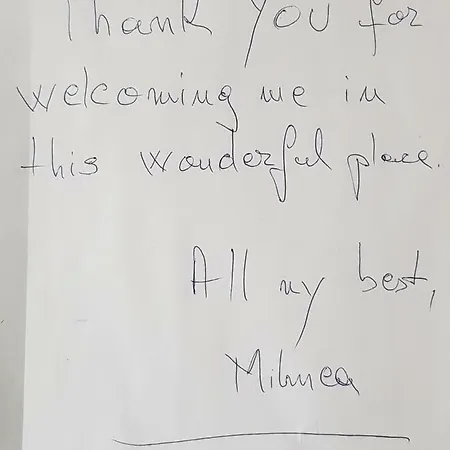 Thank you for
welcoming me in
this wonderful place.
All my best,
Mihnea